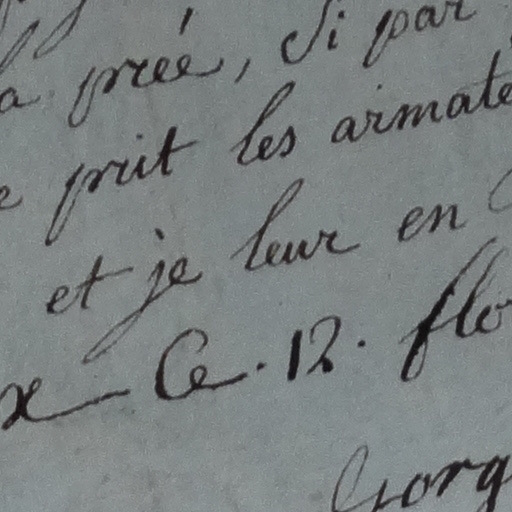 a préé, Si par
prit les armate
et je leur en
Ce. 12. flo
Gorg